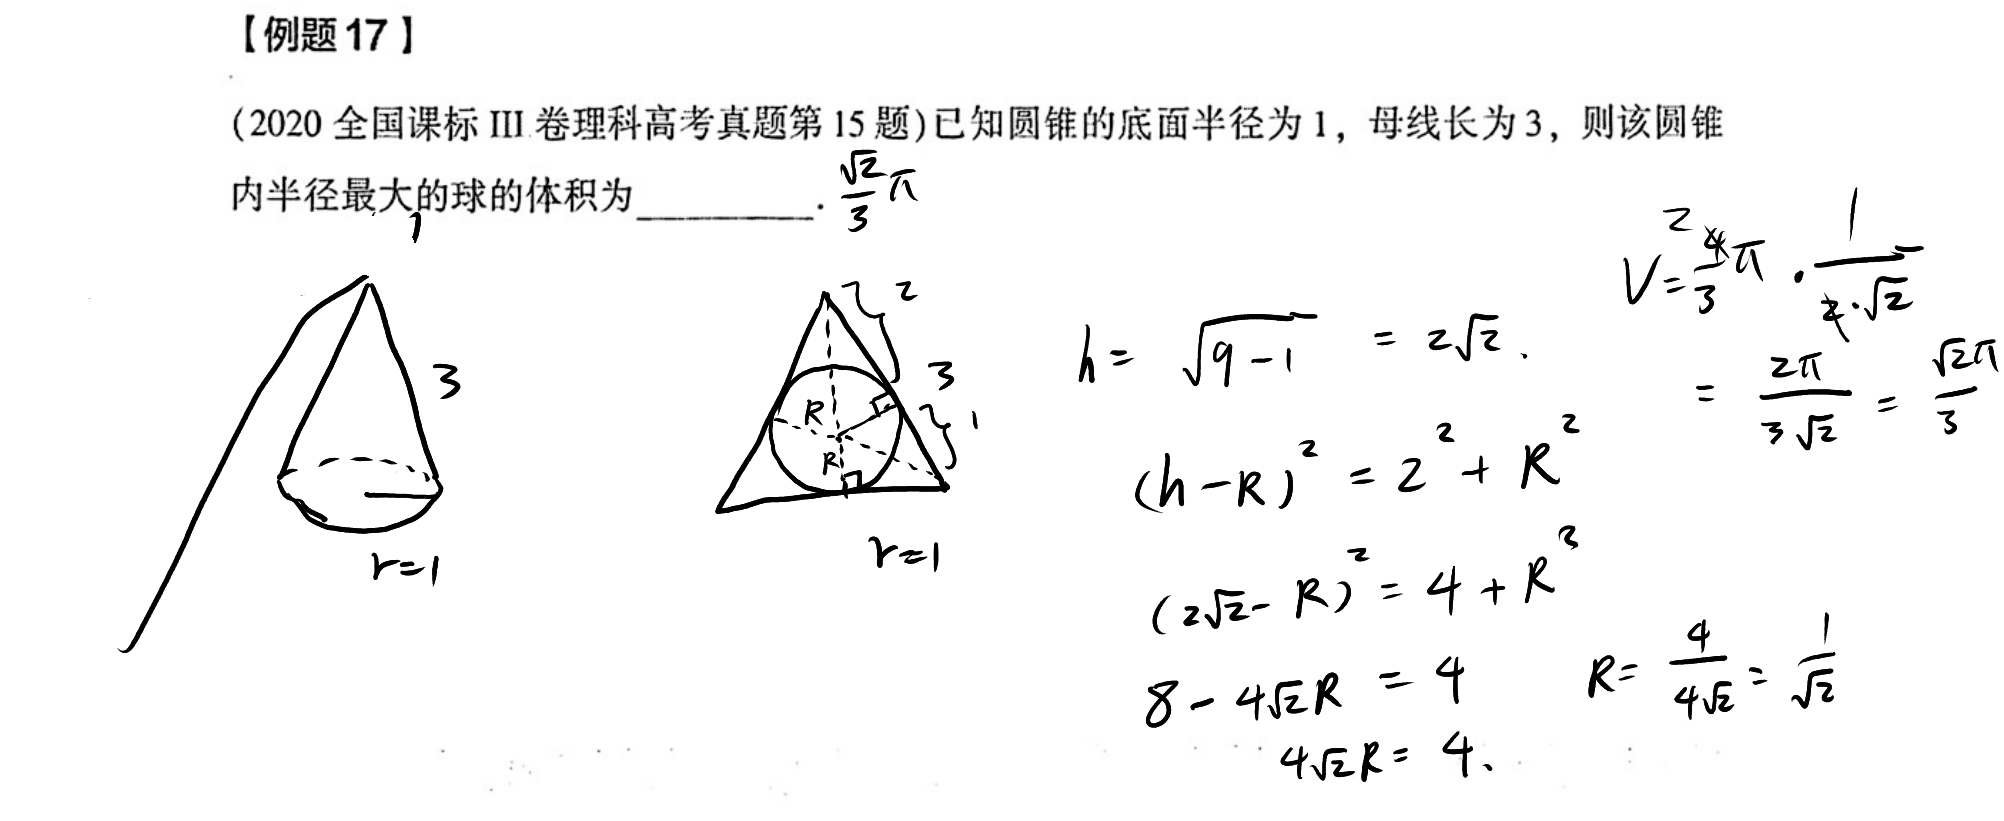 【例题17】
(2020 全国课标 III 卷理科高考真题第 15 题)已知圆锥的底面半径为 1，母线长为 3，则该圆锥
内半径最大的球的体积为________. √2/3 π
1
3
r=1
2
3
1
R
R
r=1
h = √(9-1) = 2√2.
(h-R)² = 2² + R²
(2√2-R)² = 4 + R³
8 - 4√2R = 4
4√2R = 4、
R = 4/(4√2) = 1/√2
V = 4/3 π · 1/(2·√2)
2
= 2π/(3√2) = √2π/3